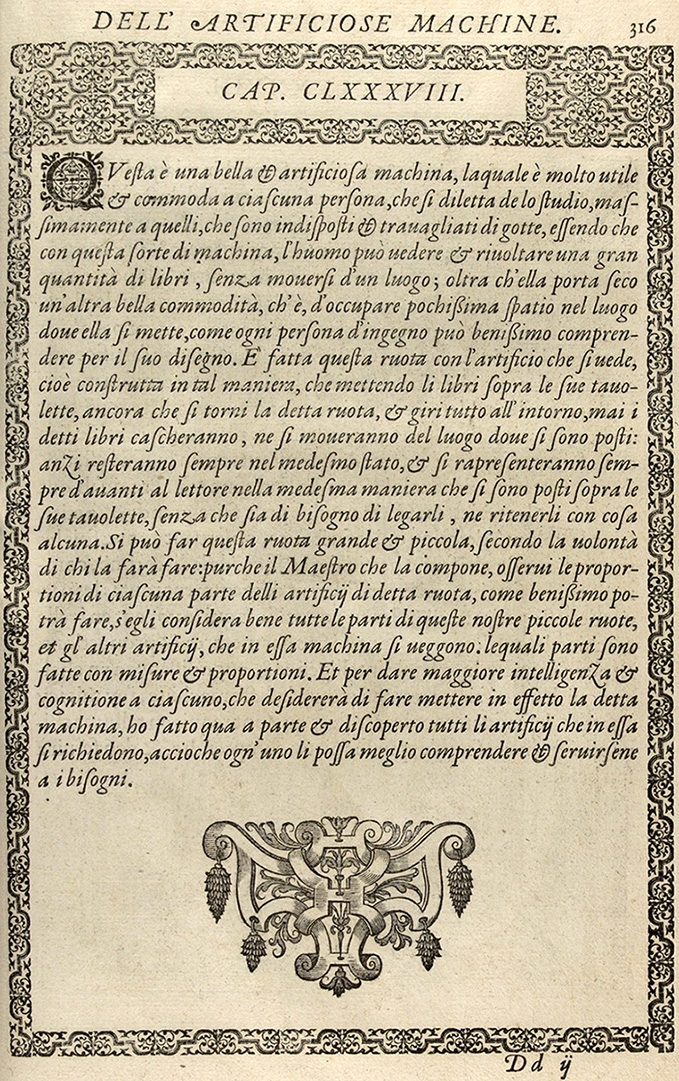 DELL' ARTIFICIOSE MACHINE. 316
CAP. CLXXXVIII.
QVeſta è una bella & artificioſa machina, laquale è molto utile
& commoda a ciaſcuna perſona, che ſi diletta de lo ſtudio, maſ-
ſimamente a quelli, che ſono indiſpoſti & trauagliati di gotte, eſſendo che
con queſta ſorte di machina, l'huomo può uedere & riuoltare una gran
quantità di libri, ſenza mouerſi d'un luogo; oltra ch'ella porta ſeco
un'altra bella commodità, ch'è, d'occupare pochißima ſpatio nel luogo
doue ella ſi mette, come ogni perſona d'ingegno può benißimo compren-
dere per il ſuo diſegno. E' fatta queſta ruota con l'artificio che ſi uede,
cioè conſtrutta in tal maniera, che mettendo li libri ſopra le ſue tauo-
lette, ancora che ſi torni la detta ruota, & giri tutto all'intorno, mai i
detti libri caſcheranno, ne ſi moueranno del luogo doue ſi ſono poſti:
anzi reſteranno ſempre nel medeſmo ſtato, & ſi rapreſenteranno ſem-
pre d'auanti al lettore nella medeſma maniera che ſi ſono poſti ſopra le
ſue tauolette, ſenza che ſia di biſogno di legarli, ne ritenerli con coſa
alcuna. Si può far queſta ruota grande & piccola, ſecondo la uolontà
di chi la farà fare: purche il Maeſtro che la compone, oſſerui le propor-
tioni di ciaſcuna parte delli artificij di detta ruota, come benißimo po-
trà fare, s'egli conſidera bene tutte le parti di queſte noſtre piccole ruote,
et gl'altri artificij, che in eſſa machina ſi ueggono. lequali parti ſono
fatte con miſure & proportioni. Et per dare maggiore intelligenza &
cognitione a ciaſcuno, che deſidererà di fare mettere in effetto la detta
machina, ho fatto qua a parte & diſcoperto tutti li artificij che in eſſa
ſi richiedono, accioche ogn'uno li poſſa meglio comprendere & ſeruirſene
a i biſogni.
Dd ij